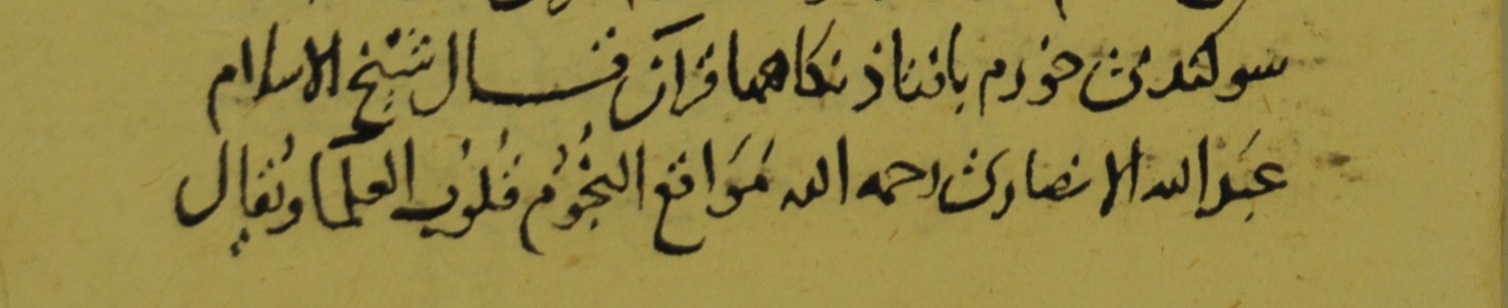 سوكند می خورم بافتاذنكاهها قران قال شيخ الاسلام
عبد الله الانصاری رحمه الله مواقع النجوم قلوب العلما ويقال